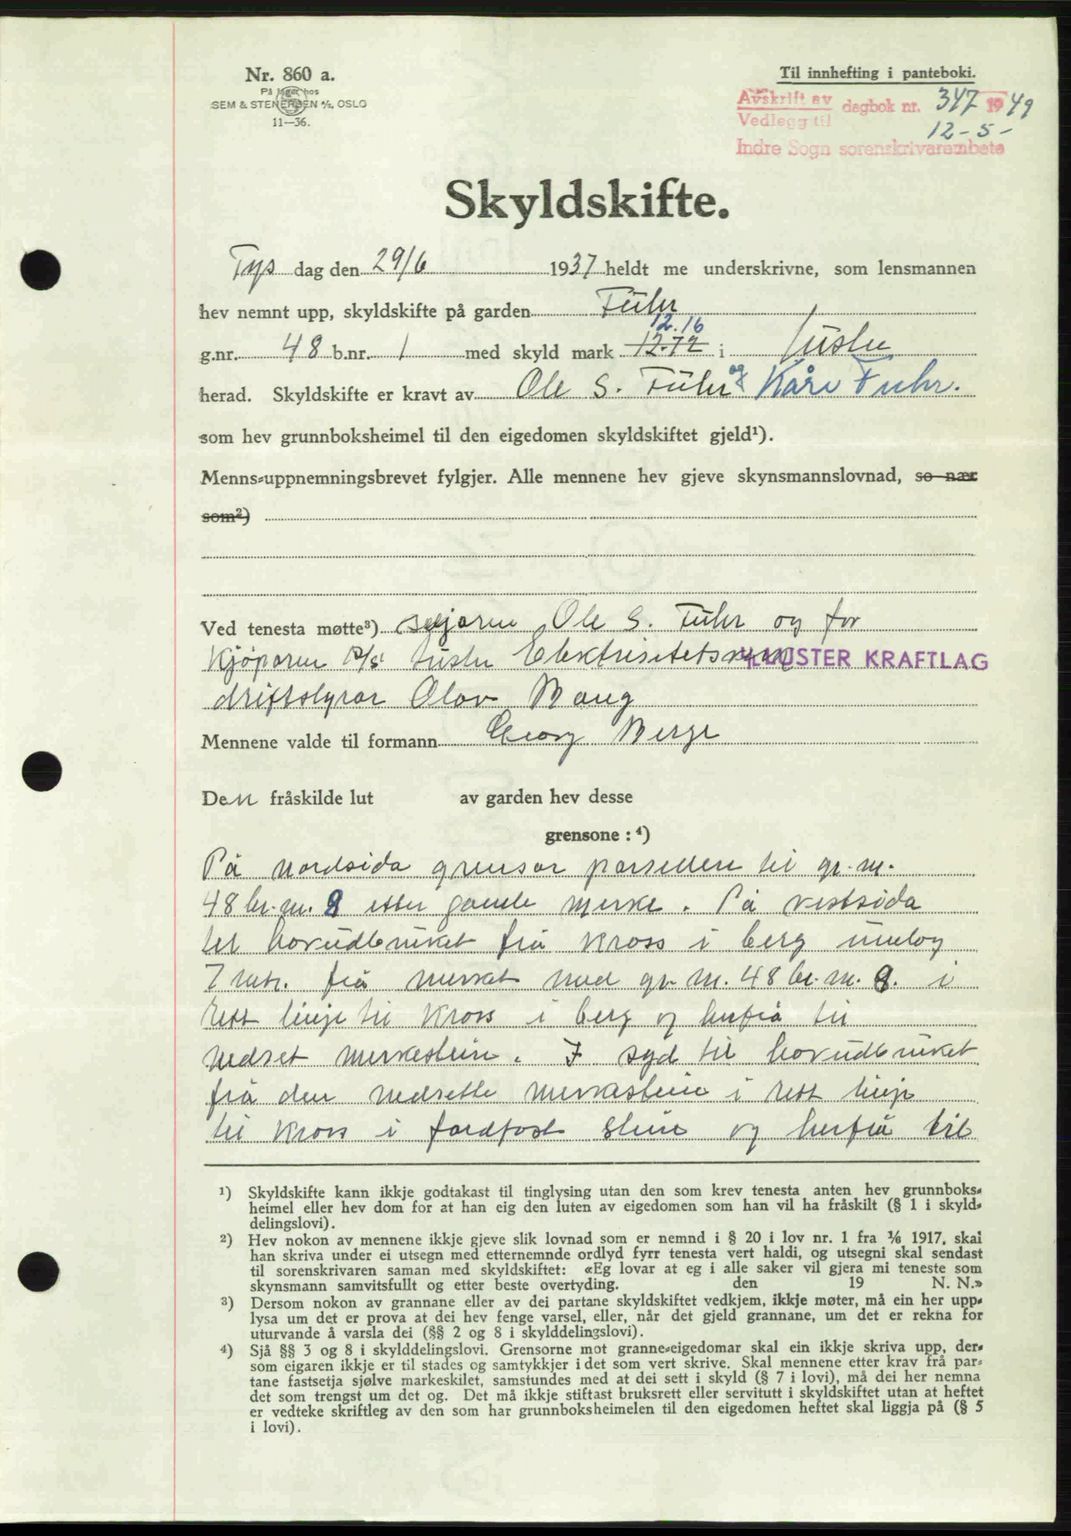 Nr. 860 a.
På lager hos
SEM & STENERSEN A/S, OSLO
11—36.
Til innhefting i panteboki.
Avskrift av
Vedlegg til
dagbok nr. 347 1949
12-5-
Indre Sogn sorenskrivarembete
Skyldskifte.
Tys dag den 29/6 1937 heldt me underskrivne, som lensmannen
hev nemnt upp, skyldskifte på garden Fuhr
12.16
g.nr. 48 b.nr. 1 med skyld mark 12.72 i Luster
herad. Skyldskifte er kravt av Ole S. Fuhr og Kåre Fuhr.
som hev grunnboksheimel til den eigedomen skyldskiftet gjeld¹).
Menns-uppnemningsbrevet fylgjer. Alle mennene hev gjeve skynsmannslovnad, so nær
som²)
Ved tenesta møtte³) seljaren Ole S. Fuhr og for
Kjøparen A/S Luster Elektrisitetsverk LUSTER KRAFTLAG
driftstyrar Olav Maug
Mennene valde til formann Georg Berge
Den fråskilde lut av garden hev desse
grensone : ⁴)
På nordsida grensar parsellen til gr. nr.
48 br. nr. 8 etter gamle merke. På vestsida
til hovudbruket frå kross i berg umlag
7 mtr. frå merket med gr. nr. 48 br. nr. 8. i
rett linje til kross i berg og herfrå til
nedset merkestein. I syd til hovudbruket
frå den nedsette merkestein i rett linje
til kross i jordfast stein og herfrå til
¹) Skyldskifte kann ikkje godtakast til tinglysing utan den som krev tenesta anten hev grunnboks-
heimel eller hev dom for at han eig den luten av eigedomen som han vil ha fråskilt (§ 1 i skyld-
delingslovi).
²) Hev nokon av mennene ikkje gjeve slik lovnad som er nemnd i § 20 i lov nr. 1 fra 1/6 1917, skal
han skriva under ei utsegn med etternemnde ordlyd fyrr tenesta vert haldi, og utsegni skal sendast
til sorenskrivaren saman med skyldskiftet: «Eg lovar at eg i alle saker vil gjera mi teneste som
skynsmann samvitsfullt og etter beste overtyding. den 19 N. N.»
³) Dersom nokon av grannane eller av dei partane skyldskiftet vedkjem, ikkje møter, må ein her upp-
lysa um det er prova at dei hev fenge varsel, eller, når det gjeld grannane, um det er rekna for
uturvande å varsla dei (§§ 2 og 8 i skylddelingslovi).
⁴) Sjå §§ 3 og 8 i skylddelingslovi. Grensorne mot granne-eigedomar skal ein ikkje skriva upp, der-
som eigaren ikkje er til stades og samtykkjer i det som vert skrive. Skal mennene etter krav frå par-
tane fastsetja sjølve markeskilet, samstundes med at dei sett i skyld (§ 7 i lovi), må dei her nemna
det som trengst um det og. Det må ikkje stiftast bruksrett eller servitutt i skyldskiftet utan at heftet
er vedteke skriftleg av den som har grunnboksheimelen til den eigedomen heftet skal liggja på (§ 5
i lovi).